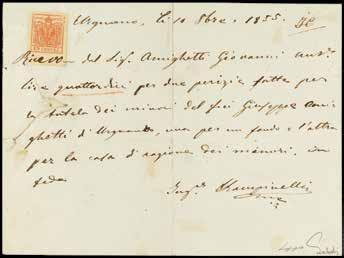 Urgnano, li 10 8bre 1855.
Ricevo dal Sig. Amighetti Giovanni aust.
lire quattordici per due perizie fatte per
la tutela dei minori del fu Giuseppe Ami-
ghetti d'Urgnano, una per un fondo e l'altra
per la casa di ragione dei minori. In
fede
Ing.